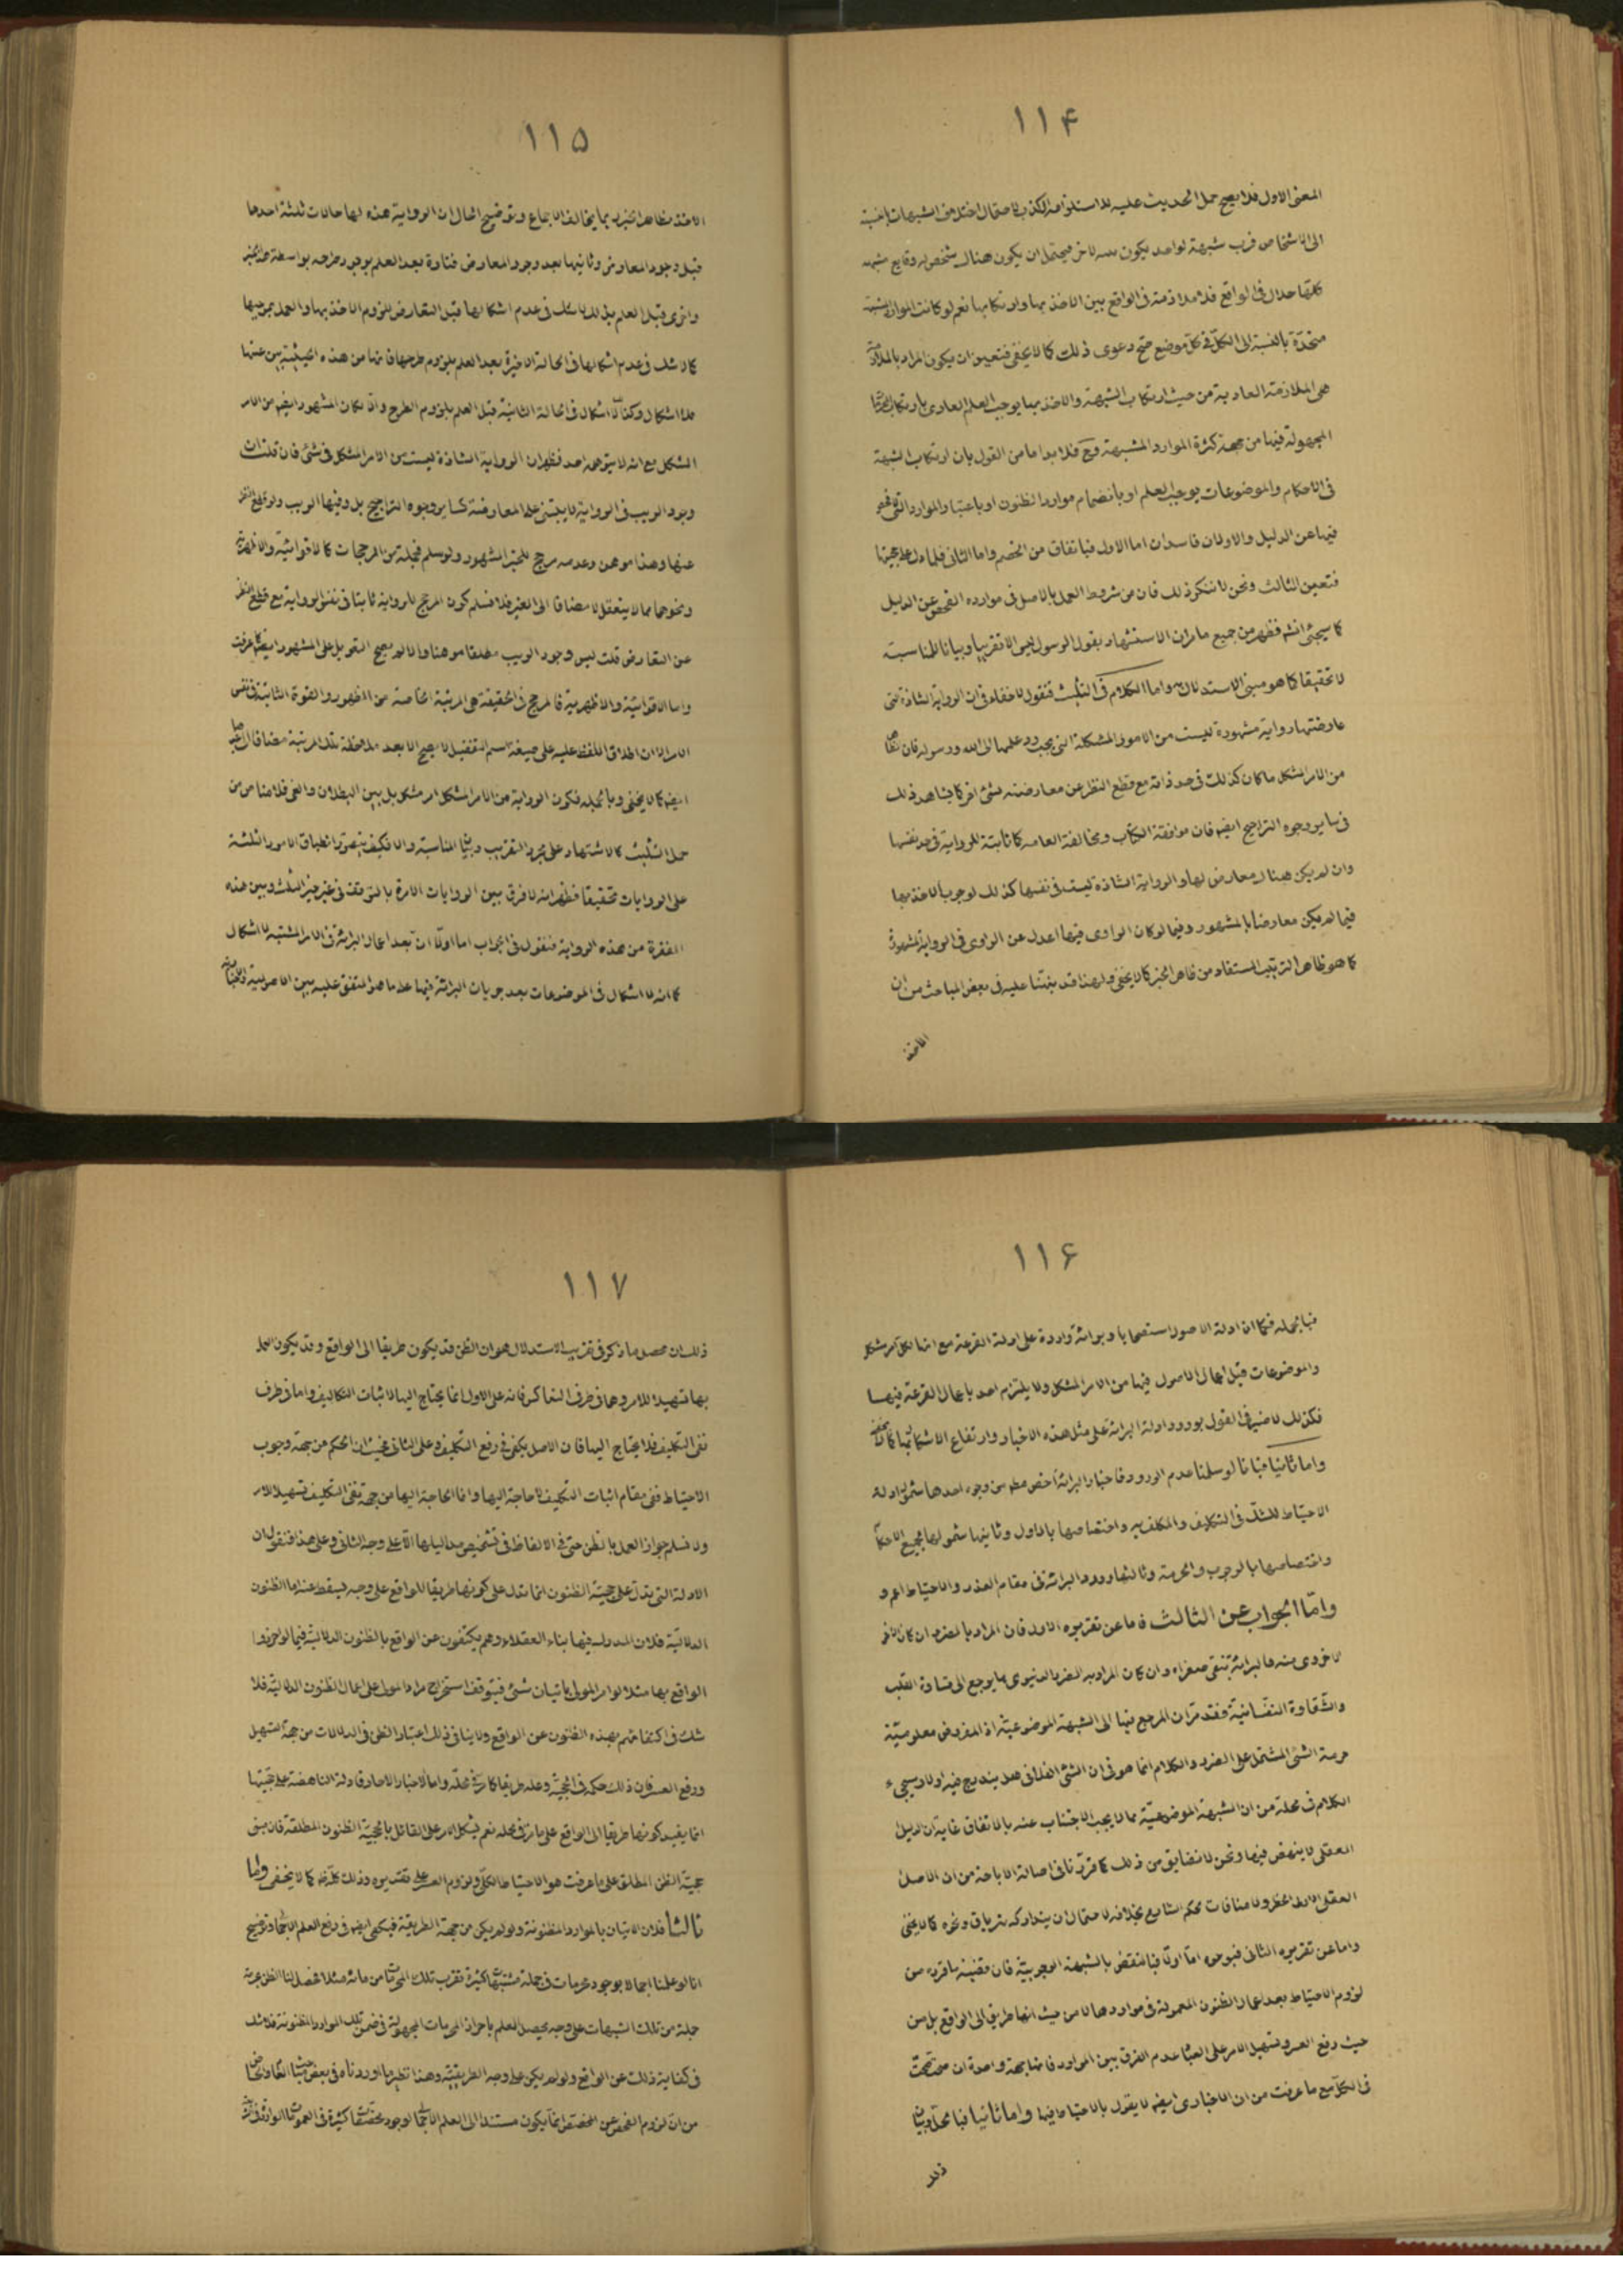 ١١۴
المعنى الاول فلا يصح حمل الحديث عليه لاستلزامه الكذب لاحتمال اختلاف الشبهات بالنسبة
الى الاشخاص فرب شبهة لواحد يكون لآخر فيحتمل ان يكون هناك شخص له وقايع مشبهة
كلها حلال فى الواقع فلا ملازمة فى الواقع بين الاخذ بها وارتكابها نعم لو كانت الموارد المشتبهة
متحدّة بالنسبة الى الكلّ فى كلّ موضع صحّ دعوى ذلك كما لا يخفى فتعين ان يكون المراد بالملازمة
هى الملازمة العادية من حيث ارتكاب الشبهة والاخذ بها يوجب العلم العادى بارتكاب
المجهولة فيها من جهة كثرة الموارد المشتبهة وح فلا بد اما من القول بان ارتكاب الشبهة
فى الاحكام والموضوعات يوجب العلم او بانضمام موارد الظنون او باعتبار الموارد التى
فيها عن الدليل والاولان فاسدان اما الاول فباتفاق من الخصم واما الثانى فلما دل على حجيتها
فتعين الثالث ونحن لا ننكر ذلك فان من شروط العمل بالاصل فى موارده الفحص عن الدليل
كما سيجئ انشه فظهر من جميع ما مر ان الاستشهاد بقول الرسول ليس الا تقريبا وبيانا للمناسبة
لا تحقيقا كما هو مبنى الاستدلال واما الكلام فى التثليث فنقول لا خفاء فى ان الرواية الشاذة التى
عارضتها رواية مشهورة ليست من الامور المشكلة التى يجب رد علمها الى الله ورسوله فان
من الامر المشكل ما كان كذلك فى حد ذاته مع قطع النظر عن معارضته بشئ اخر كما يشاهد ذلك
فى ساير وجوه التراجيح ايضه فان موافقة الكتاب ومخالفة العامه كما ثابتة للرواية فى حد نفسها
وان لم يكن هناك معارض لها والرواية الشاذة ليست فى نفسها كذلك لوجوب الاخذ بها
فيما لم يكن معارضا بالمشهور وفيما لو كان الراوى فيها اعدل عن الراوى فى الرواية المشهورة
كما هو ظاهر الترتيب المستفاد من ظاهر الخبر كما لا يخفى ولهذا قد نبهنا عليه فى بعض المباحث من ان
الاخذ
١١۵
الاخذ بظاهر الخبر مما يخالف الاجماع وتوضيح الحال ان الرواية هذه لها حالات ثلثة احدها
قبل وجود المعارض وثانيها بعد وجود المعارض فتارة بعد العلم بوجود طرحه بواسطة
واخرى قبل العلم بذلك لا شك فى عدم اشكالها قبل التعارض للزوم الاخذ بها والعمل بموجبها
كما لا شك فى عدم اشكالها فى الحالة الاخيرة بعد العلم بلزوم طرحها فانها من هذه الحيثية بين غيها
فلا اشكال وكذا لا اشكال فى الحالة الثانية قبل العلم بلزوم الطرح والا لكان المشهور ايضه من الامر
المشكل مع انه لا يتوهمه احد فظهر ان الرواية الشاذة ليست من الامر المشكل فى شئ فان قلت ان
وجود الريب فى الرواية لا يبتنى على المعارضة كساير وجوه التراجيح بل وفيها الريب ولو قطع النظر
عنها وهذا موهن وعدمه مرجح للخبر المشهور ولو سلم فجملة من المرجحات كالاقوائية والاظهرية
ونحوهما مما لا يتعقل الا مضافا الى الغير فلا نسلم كون المرجح للرواية ثابتا فى نفس الرواية مع قطع النظر
عن التعارض قلت ليس وجود الريب مطلقا موهنا والا لم يصح التعويل على المشهور ايضه كما عرفت
واما الاقوائية والاظهرية فالمرجح فى الحقيقة هى المرتبة الخاصة من الظهور والقوة الثابتة فى نفس
الامر الا ان اطلاق اللفظ عليه على صيغة اسم التفضيل لا يصح الا بعد ملاحظة تلك المرتبة مضافا الى
ايضه كما لا يخفى وبالجمله فكون الرواية من الامر المشكل امر مشكل بل بين البطلان والغى فلا مناص من
حمل التثليث كالاستشهاد على مجرد التقريب وبيان المناسبة والا فكيف يتصور انطباق الامور الثلثة
على الروايات تحقيقا فظهر انه لا فرق بين الروايات الامرة بالتوقف فى غير خبر التثليث وبين هذه
الفقرة من هذه الرواية فنقول فى الجواب اما اولا ان بعد اعمال البرائة فى الامر المشتبه لا اشكال
كما انه لا اشكال فى الموضوعات بعد جريان البرائة فيها على ما هو المتفق عليه بين الاصولية والاخبارية
١١۶
فبالجمله فكما ان ادلة الاصول استصحابا وبرائة واردة على ادلة القرعة مع انها لكل امر مشكل
والموضوعات قبل اعمال الاصول فيها من الامر المشكل ولا يلتزم احد باعمال القرعة فيها
فكذلك لا ضير فى القول بورود ادلة البرائة على مثل هذه الاخبار وارتفاع الاشكال بها كما لا يخفى
واما ثانيا فبانا لو سلمنا عدم الورود فاخبار البرائة اخص مطلقا من وجوه احدها شمول ادلة
الاحتياط للشك فى التكليف والمكلف به واختصاصها بالاول وثانيها شمولها لجميع الاحكام
واختصاصها بالوجوب والحرمة وثالثها ورود البرائة فى مقام العذر والاحتياط اعم و
وامّا الجواب عن الثالث فاما عن تقريره الاول فان المراد بالضرر ان كان
الاخروى منه فالبرائة تنفى صغراه وان كان المراد به الضرر الدنيوى مما يرجع الى قساوة القلب
والشقاوة النفسانية فقد مرّ ان المرجع فيها الى الشبهة الموضوعية اذ المفروض معلومية
حرمة الشئ المشتمل على الضرر والكلام انما هو فى ان الشئ الفلانى هل يندرج فيه اولا وسيجىء
الكلام فى محله من ان الشبهة الموضوعية مما لا يجب الاجتناب عنه بالاتفاق غاية ان الدليل
العقلى لا ينهض فيها ونحن لا نضايق من ذلك كما قررنا فى اصالة الاباحة من ان الاصل
العقلى الاولى الحظر ولا منافات لحكم الشارع بخلافه لاحتمال ان يتداركه بترياق ونحوه كما لا يخفى
واما عن تقريره الثانى فبوجوه اما اولا فبالنقض بالشبهة الوجوبية فان قضية ما قرره من
لزوم الاحتياط بعد اعمال الظنون المعمولة فى مواردها لا من حيث انها طريق الى الواقع بل من
حيث رفع العسر وتسهيل الامر على العباد عدم الفرق بين الموارد فانها بجهة واحدة ان صحت صحت
فى الكل مع ما عرفت من ان الاخبارى ايضه لا يقول بالاحتياط فيها واما ثانيا فبالحل وبيان
ذلك
١١٧
ذلك ان محصل ما ذكر فى تقريب الاستدلال هو ان الظن قد يكون طريقا الى الواقع وقد يكون العمل
بها تسهيلا للامر وهما فى طرف التعاكس فانه على الاول انما يحتاج اليها لاثبات التكاليف واما فى طرف
نفى التكليف فلا يحتاج اليها فان الاصل يكفى فى رفع التكليف وعلى الثانى فحيث ان الحكم من جهة وجوب
الاحتياط ففى مقام اثبات التكليف لا حاجة اليها وانما الحاجة اليها من جهة نفى التكليف تسهيلا للامر
ولا نسلم جواز العمل بالظن حتى فى الالفاظ فى تشخيص مداليلها الا على وجه الثانى وعلى هذا فنقول ان
الادلة التى تدل على حجية الظنون انما تدل على كونها طريقا للواقع على وجه يسقط عنه اما الظنون
الدلالتية فلان المدرك فيها بناء العقلاء وهم يكتفون عن الواقع بالظنون الدلالية فيما لو احرزوا
الواقع بها مثلا لو امر المولى باتيان شئ فيتوقف استخراج مراد المولى على اعمال الظنون الدلالية فلا
شك فى اكتفائهم بهذه الظنون عن الواقع ولا ينافى ذلك اعتبار الظن فى الدلالات من جهة التسهيل
ورفع العسر فان ذلك حكمة فى الحجية وعلة طريقا كما فى محله واما الاخبار الاحاد فادلة الناهضة على حجيتها
انما يفيد كونها طريقا الى الواقع على ما مر فى محله نعم يشكل الامر على القائل بالحجية الظنون المطلقة فان مبنى
حجية الظن المطلق على ما عرفت هو الاحتياط الكلى ولزوم العسر على تقديره وذلك كله كما لا يخفى واما
ثالثا فلان الاتيان بالموارد المظنونة ولو لم يكن من جهة الطريقية فيكفى ايضه فى رفع العلم الاجمالى وتوضيح
انا لو علمنا اجمالا بوجود محرمات فى جملة مشتبهات كثيرة تقرب تلك المحرمات من مائة مثلا فحصل لنا الظن بحرمة
جملة من تلك الشبهات على وجه يحصل العلم باحراز المحرمات المجهولة فى ضمن تلك الموارد المظنونة فلا شك
فى كفاية ذلك عن الواقع ولو لم يكن على وجه الطريقية وهذا نظير ما اوردناه فى بعض مباحث
من ان لزوم الفحص عن المخصص انما يكون مستندا الى العلم الاجمالى لوجود مخصصات كثيرة فى العمومات الواردة فى